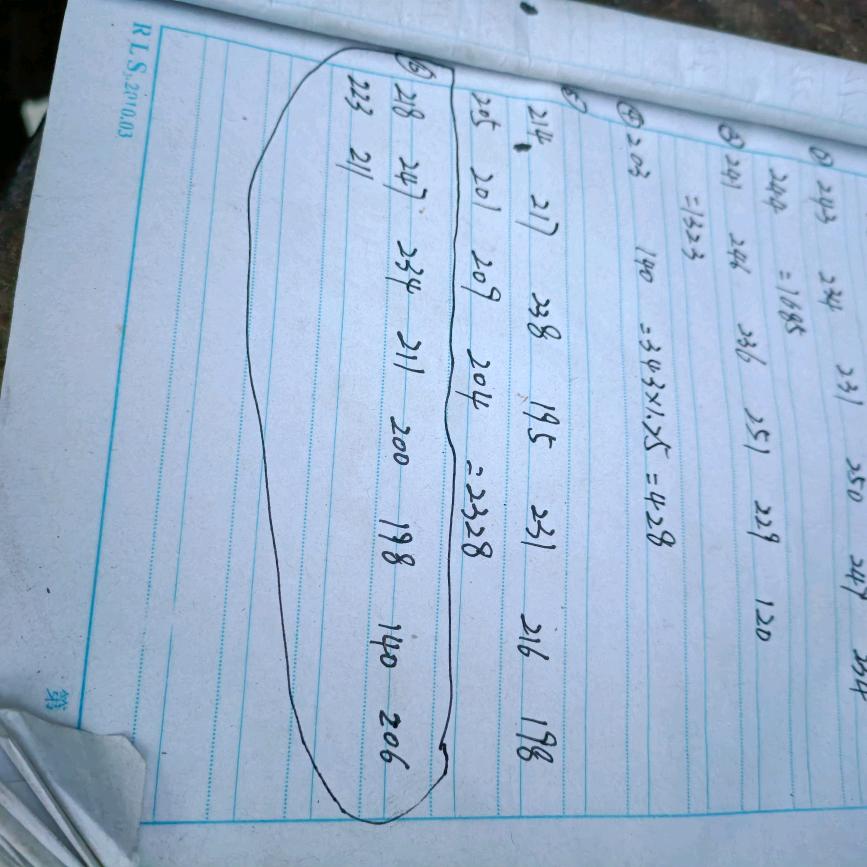 ① 243 244 231 250 249 234
244 =1695
③ 241 246 236 251 229 120
=1323
④ 203 140 =343×1.25=428
214 217 238 195 231 216 198
205 201 209 204 =2328
⑥ 218 247 234 211 200 198 140 206
223 211
RLS.2010.03
第